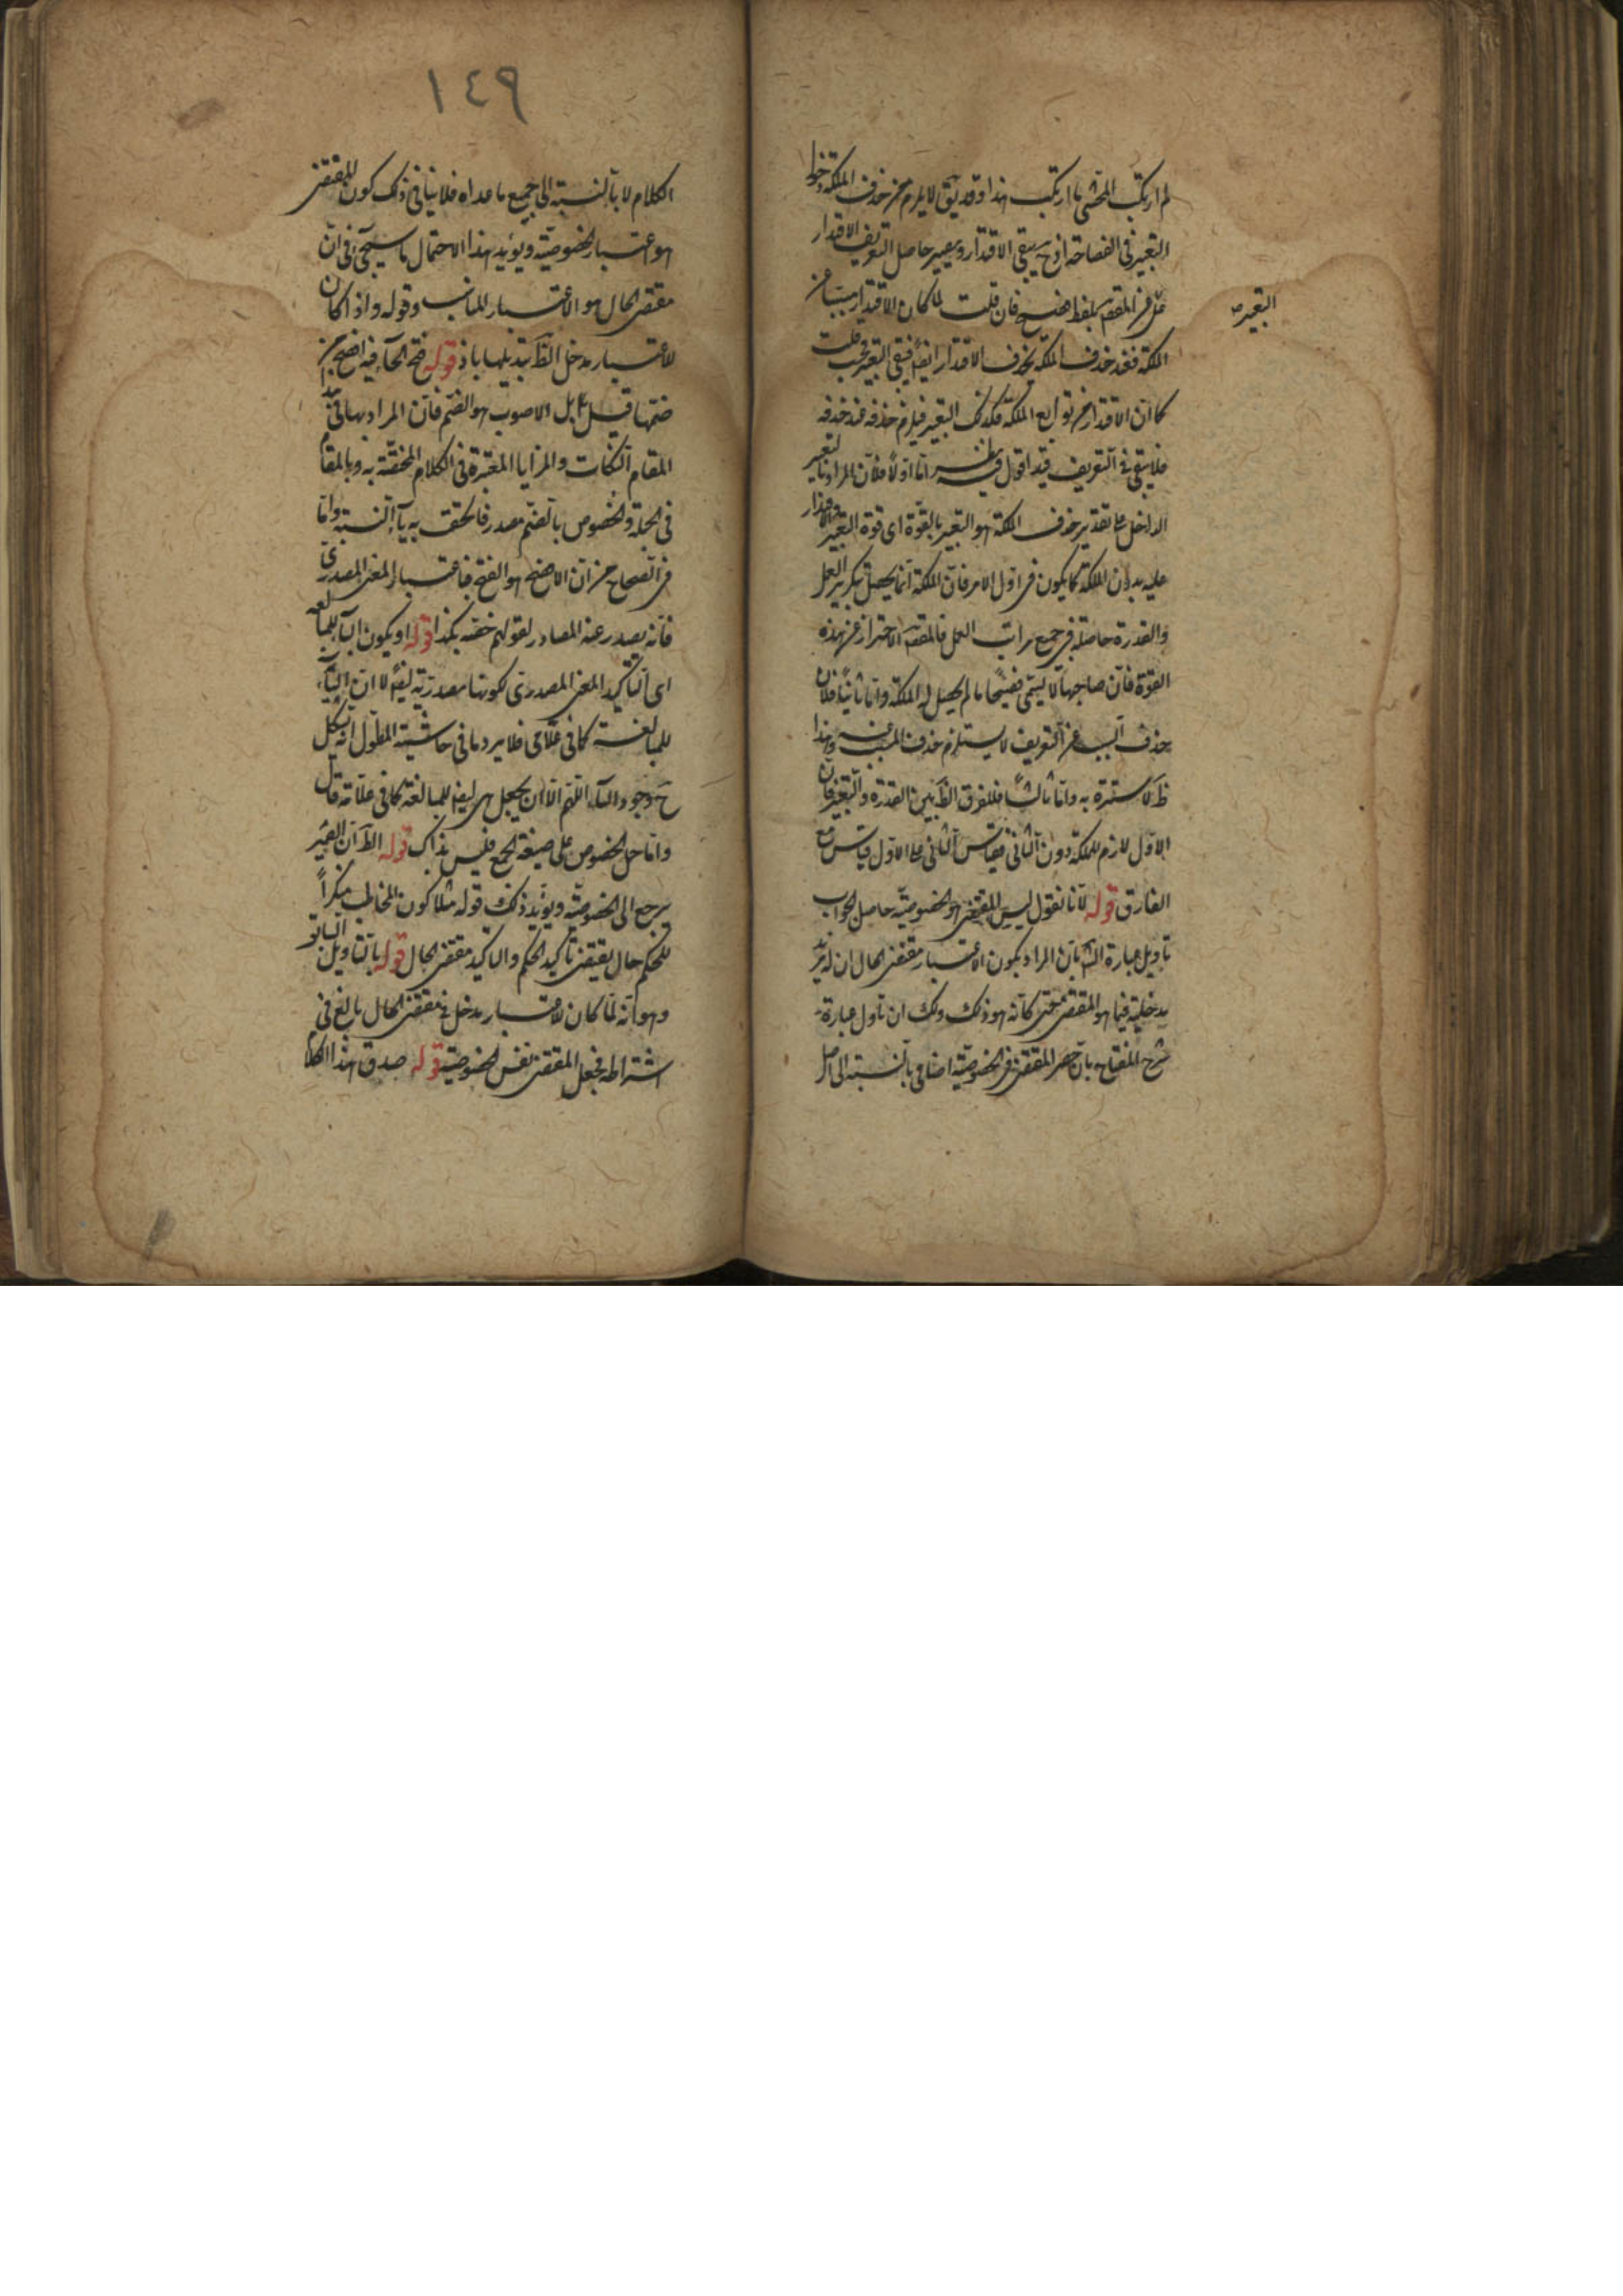 لم ارتكب المحشى ما ارتكب هذا وقد يق لا يلزم من حذف الملكة دخول
التعبير فى الفصاحة اذ ح يبقى الاقتدار ويصير حاصل التعريف الاقتدار
عن المقصود بلفظ فصيح فان قلت لما كان الاقتدار مسببا عن
التعبير صح
الملكة فعند حذف الملكة يحذف الاقتدار ايضا فيبقى التعبير قلت
كما ان الاقتدار من توابع الملكة فكذلك التعبير فيلزم حذفه عند حذفه
فلا يبقى فى التعريف قيد اقول فيه نظر اما اولا فلان المراد بالتعبير
الداخل على تقدير حذف الملكة هو التعبير بالقوة اى قوة التعبير والاقتدار
عليه بدون الملكة كما يكون فى اول الامر فان الملكة انما يحصل بتكرير العمل
والقدرة حاصلة فى جميع مراتب العمل فالمقصود الاحتراز عن هذه
القوة فان صاحبها لا يسمى فصيحا ما لم يحصل له الملكة واما ثانيا فلان
حذف السبب عن التعريف لا يستلزم حذف المسبب عنه وهذا
ظ لا سترة به واما ثالثا فللفرق الظ بين القدرة والتعبير فان
الاول لازم للملكة دون الثانى فقياس الثانى على الاول قياس مع
الفارق قوله لانا نقول ليس المقتضى هو الخصوصية حاصل الجواب
تاويل عبارة الش بان المراد بكون الاعتبار مقتضى الحال ان له مزيد
مدخلية فيما هو المقتضى حتى كانه هو ذلك ولك ان تأول عبارة
شرح المفتاح بان حصر المقتضى فى الخصوصية اضافى بالنسبة الى اصل
١٤٩
الكلام لا بالنسبة الى جميع ما عداه فلا ينافى ذلك كون المقتضى
هو اعتبار الخصوصية ويؤيد هذا الاحتمال ما سيجئ فى ان
مقتضى الحال هو الاعتبار المناسب وقوله واذا كان
للاعتبار مدخل الظ تبديلها باذ قوله فتح الخاء فيه افصح من
ضمها قيل بل الاصوب هو الضم فان المراد بها فى هذا
المقام النكات والمزايا المعتبرة فى الكلام المختصة به وبالمقام
فى الجملة والخصوص بالضم مصدر فالحق به ياء النسبة واما
فى الصحاح من ان الافصح هو الفتح فاعتبار المعنى المصدرى
فانه يصدر عنه المصادر لقولهم خصه بكذا قوله او يكون التاء للمبالغة
اى التاكيد المعنى المصدرى لكونها مصدرية ايضا لا ان التاء
للمبالغة كما فى علامى فلا يرد ما فى حاشية المطول انه يشكل
ح وجود التاء اللهم الا ان يجعل هى ايضا للمبالغة كما فى علامة قال
واما حمل الخصوص على صيغة الجمع فليس بذاك قوله الظ ان الضمير
يرجع الى الخصوصية ويؤيد ذلك قوله مثلا كون المخاطب منكرا
للحكم حال يقتضى تاكيد الحكم والتاكيد مقتضى الحال قوله بالتاويل السابق
وهو انه لما كان للاعتبار مدخل فى مقتضى الحال بالغ فى
اشتراطه فجعل المقتضى نفس الخصوصية قوله صدق هذا الكلام